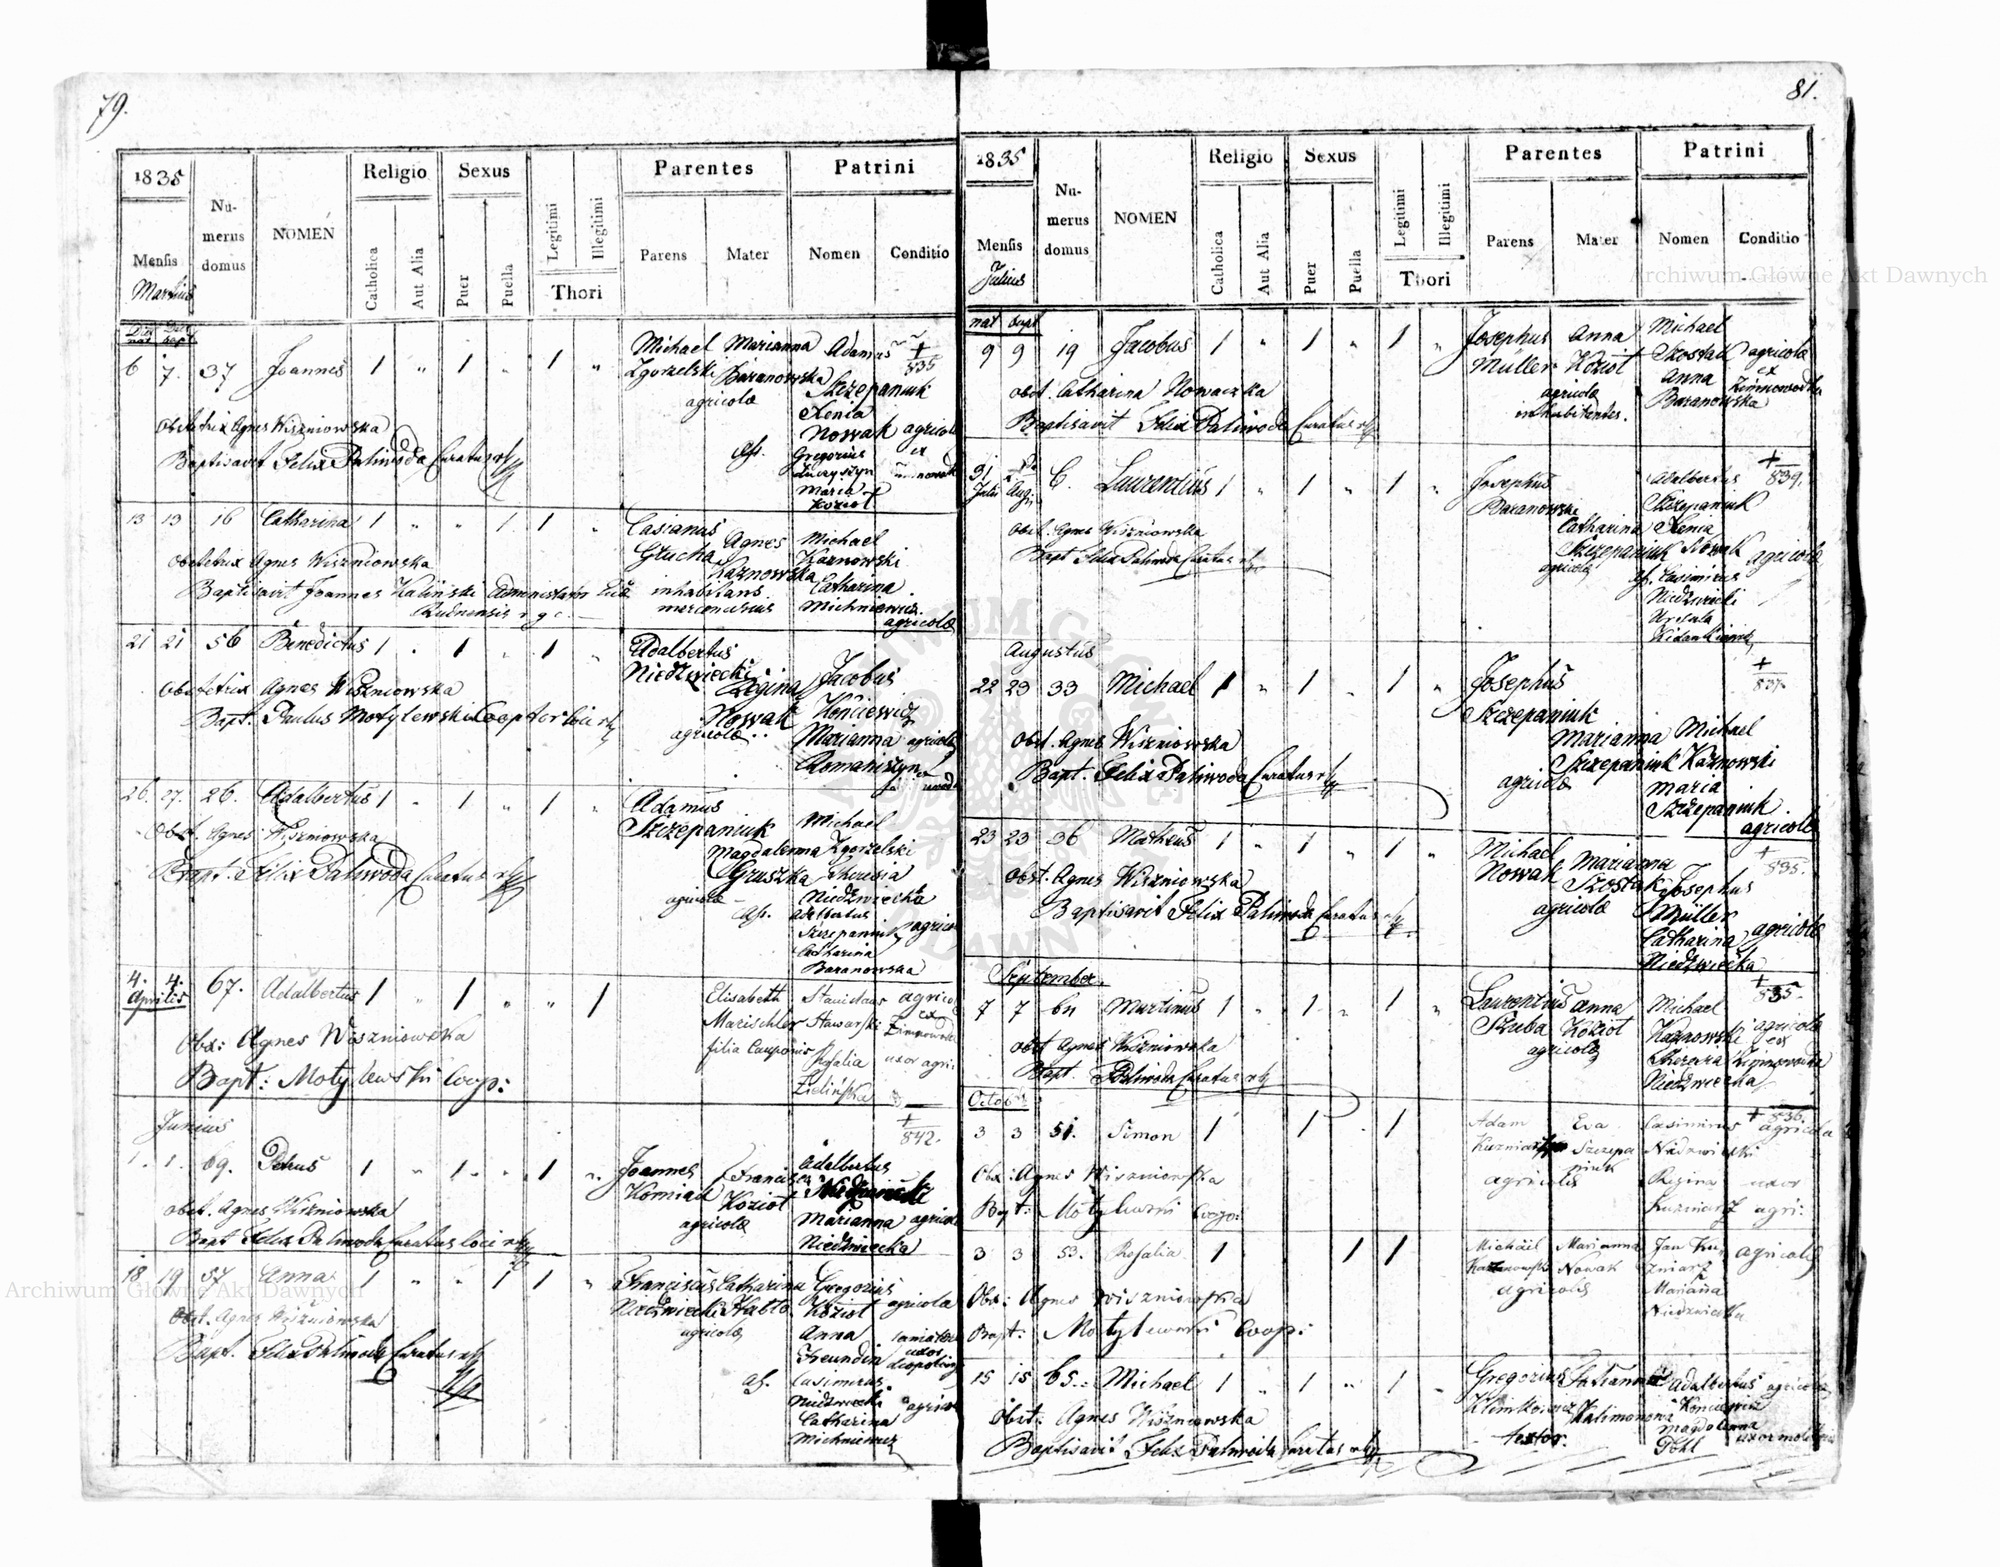 79.
1835
Mensis
Martius
Numerus
domus
NOMEN
Religio
Catholica
Aut Alia
Sexus
Puer
Puella
Legitimi
Illegitimi
Thori
Parentes
Parens
Mater
Patrini
Nomen
Conditio
Dies nat Dies bapt
6 7. 37 Joannes 1 " 1 " 1 "
Michael Zgorzelski
Marianna Baranowska
agricolæ
Adamus Szczepaniuk
Xenia Nowak agricolæ
ass. Gregorius
Maria Kozioł
+ 835
Obstetrix Agnes Wiszniowska
Baptisavit Felix Paliwoda Curatus
13 13 16 Catharina 1 " " 1 1 "
Casianus Głucha
Agnes Kaznowska
inhabitans
mercenarius
Michael Kaznowski
Catharina Michniewicz
agricolæ
Obstetrix Agnes Wiszniowska
Baptisavit Joannes Kaliński Administrator
Rudnensis r. g. c.
21 21 56 Benedictus 1 " 1 " 1 "
Adalbertus Niedzwiecki
Regina Nowak
agricolæ
Jacobus
Marianna agricolæ
Romaniszyn
Obstetrix Agnes Wiszniowska
Bapt. Paulus Motylewski Cooptor loci
26. 27. 26. Adalbertus 1 " 1 " 1 "
Adamus Szczepaniuk
Magdalenna Gruszka
agricolæ
Michael Zgorzelski
Theresia Niedzwiecka
ass. Adalbertus Szczepaniuk agricolæ
Catharina Baranowska
Obst. Agnes Wiszniowska
Bapt. Felix Paliwoda Curatus
4. 4. Aprilis 67. Adalbertus 1 " 1 " " 1
Elisabeth Marischler
filia Cauponis
Stanislaus
Rosalia uxor agri:
Zielińska
Obs: Agnes Wiszniowska
Bapt: Motylewski Coop:
Junius
1. 1. 69. Petrus 1 " 1 " 1 "
Joannes Korniak
Kozioł
agricolæ
Adalbertus
Marianna Niedzwiecka
+ 842.
Obst. Agnes Wiszniowska
Bapt Felix Paliwoda Curatus loci
18 19 57 Anna 1 " " 1 1 "
Franciscus Niedzwiecki
Catharina
agricolæ
Gregorius Kozioł agricolæ
Anna Freundin
uxor
ass. Casimirus Niedzwiecki
Catharina Michniewicz
Obst. Agnes Wiszniowska
Bapt. Felix Paliwoda Curatus
81.
1835
Mensis
Julius
Numerus
domus
NOMEN
Religio
Catholica
Aut Alia
Sexus
Puer
Puella
Legitimi
Illegitimi
Thori
Parentes
Parens
Mater
Patrini
Nomen
Conditio
nat bapt
9 9 19 Jacobus 1 " 1 " 1 "
Josephus Müller
Anna Kozioł
agricolæ
inhabitantes.
Michael Szostak agricolæ
Anna Baranowska ex Zimnowoda
obst. Catharina Nowaczka
Baptisavit Felix Paliwoda Curatus
31 Julii
Aug.
6. Laurentius 1 " 1 " 1 "
Josephus Baranowski
Catharina Szczepaniuk
agricolæ
Adalbertus Szczepaniuk
Xenia Nowak agricolæ
ass. Casimirus Niedzwiecki
Ursula
+ 839.
Obst. Agnes Wiszniowska
Bapt Felix Paliwoda Curatus
Augustus
22 23 33 Michael 1 " 1 " 1 "
Josephus Szczepaniuk
Marianna Szczepaniuk
agricolæ
Michael Kaznowski
Maria Szczepaniuk
agricolæ
+ 837.
Obst. Agnes Wiszniowska
Bapt. Felix Paliwoda Curatus
23 23 36 Matheus 1 " 1 " 1 "
Michael Nowak
Marianna Szostak
agricolæ
Josephus Müller
Catharina Niedzwiecka
agricolæ
+ 835.
Obst. Agnes Wiszniowska
Baptisavit Felix Paliwoda Curatus
September.
7 7 64 Martinus 1 " 1 " 1 "
Laurentius Szuba
Anna Kozioł
agricolæ
Michael Kaznowski agricolæ
ex Zimnowoda
Niedzwiecka
+ 835.
obst Agnes Wiszniowska
Bapt. Paliwoda Curatus
Octob
3 3 51. Simon 1 1 1
Adam Kuzniarz
Eva Szczepaniuk
agricolæ
Casimirus Niedzwiecki agricola
Regina Kuzniarz uxor agri:
+ 836.
Obs: Agnes Wiszniowska
Bapt: Motylewski Coop:
3 3 53. Rosalia 1 1 1
Michael
Marianna Nowak
agricolæ
Jan Kuzniarz agricolæ
Marianna Niedzwiecka
Obs: Agnes Wiszniowska
Bapt: Motylewski Coop:
15 15 65. Michael 1 " 1 " 1
Gregorius
textor.
Adalbertus
Magdalenna Pohl
Obst: Agnes Wiszniowska
Baptisavit Felix Paliwoda Curatus
Archiwum Główne Akt Dawnych
Archiwum Główne Akt Dawnych